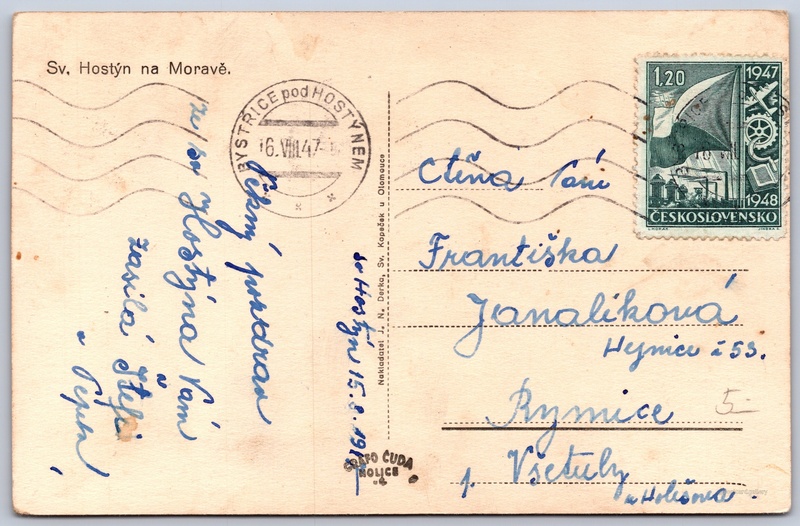 Sv. Hostýn na Moravě.
BYSTRICE pod HOSTÝNEM
16.VIII.47
1,20
1947
1948
ČESKOSLOVENSKO
Pěkný pozdrav
ze sv Hostýna Vám
zasílá Štefi
a Pepin
sv Hostýn 15.8.1947
Nakladatel J. N. Derka, Sv. Kopeček u Olomouce
Ctěna Paní
Františka
Janalíková
Hejnice č 53.
Rymice
p. Všetuly
u Holešova.
5-
FOTO ČUDA
HOLICE